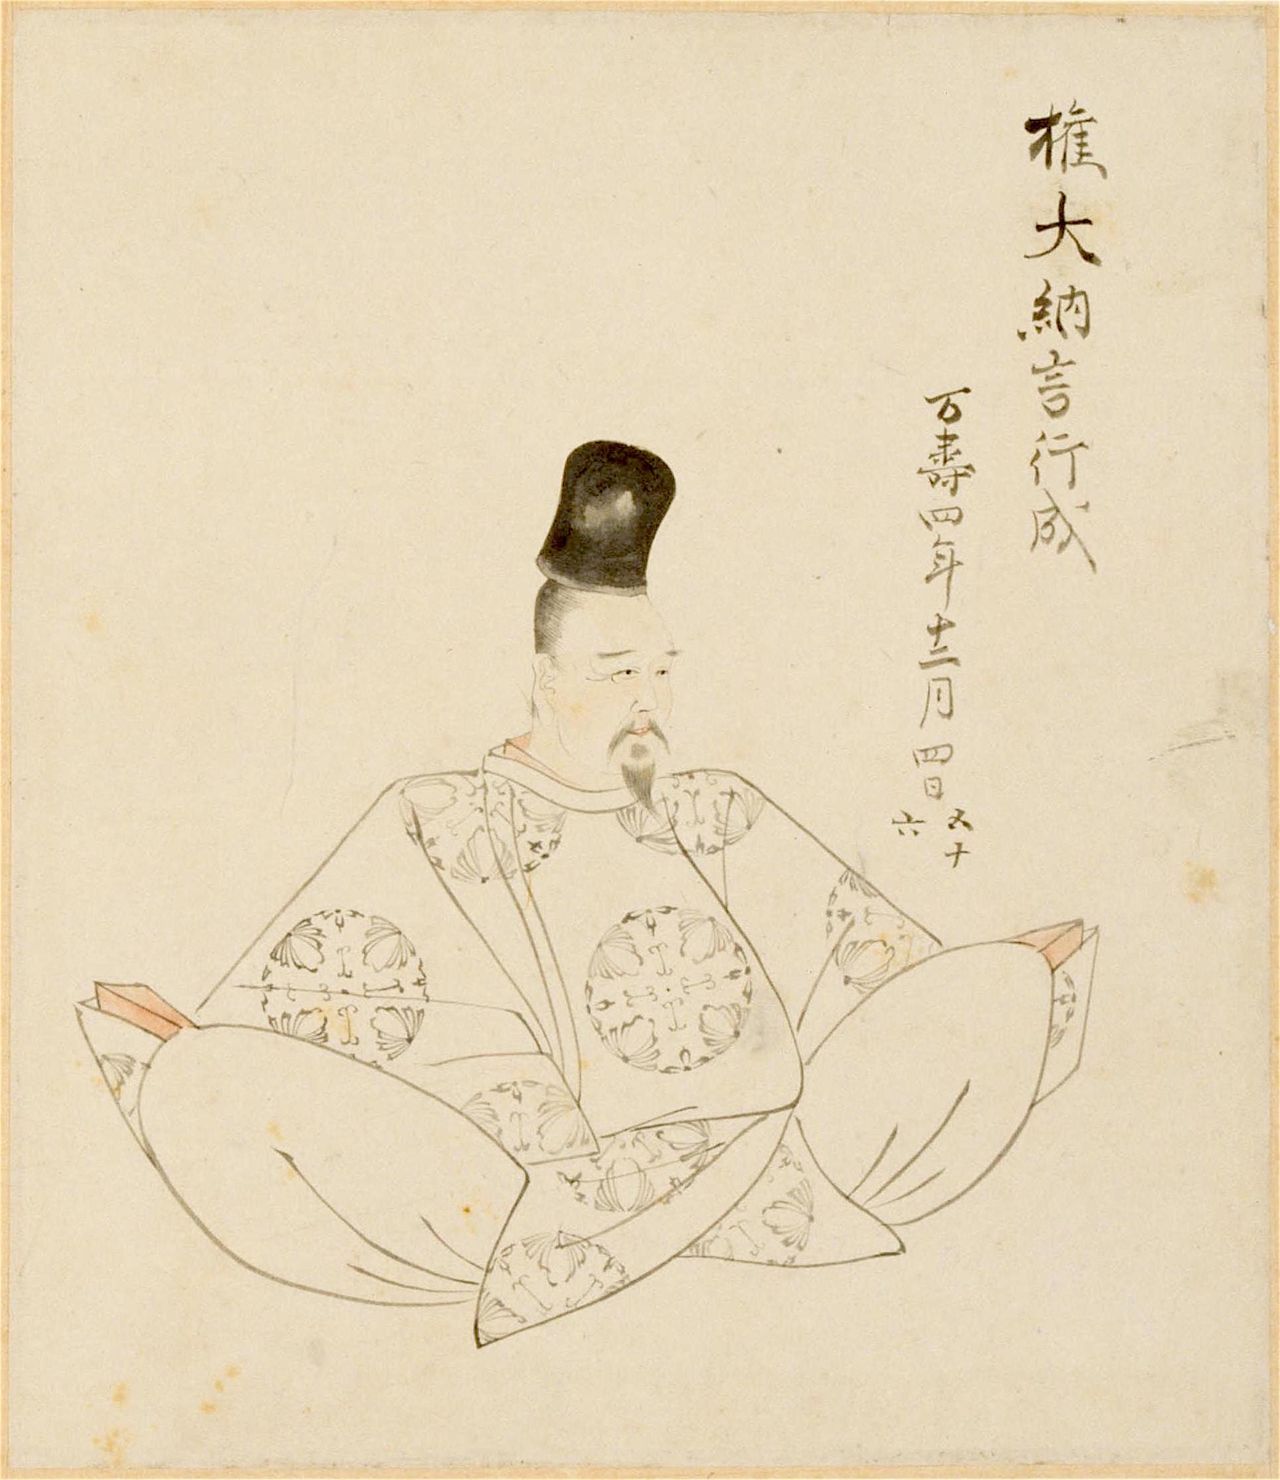 権大納言行成
万壽四年十二月四日
五十
六